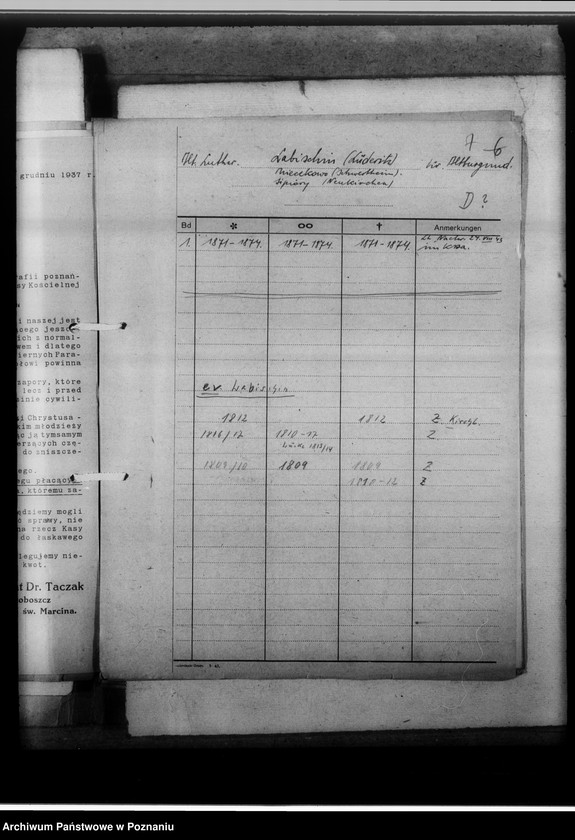 grudniu 1937 r.
rafii poznań-
sy Kościelnej
i naszej jest
ącego jeszcze
ich z normal-
wem i dlatego
iernych Para-
łowi powinna
zapory, które
lecz i przed
zinie cywili-
i Chrystusa -
kim młodzieży
ąc ją tymsamym
erzących czę-
do zniszcze-
ego.
egu płacących
a, któremu za-
ędziemy mogli
ć sprawy, nie
na rzecz Kasy
do łaskawego
iegujemy nie-
kwot.
t Dr. Taczak
oboszcz
św. Marcina.
7 6
Alt Luther. Labischin (Lüderitz) Kr. Altburgund.
(Neukirchen)
D ?
Bd * ∞ † Anmerkungen
1. 1871-1874. 1871-1874. 1871-1874.
ev. Labischin
1812 1812 Z. Kirchb.
1816/17 1810-17 Z
1809 1809 Z
1810-12 Z
Archiwum Państwowe w Poznaniu